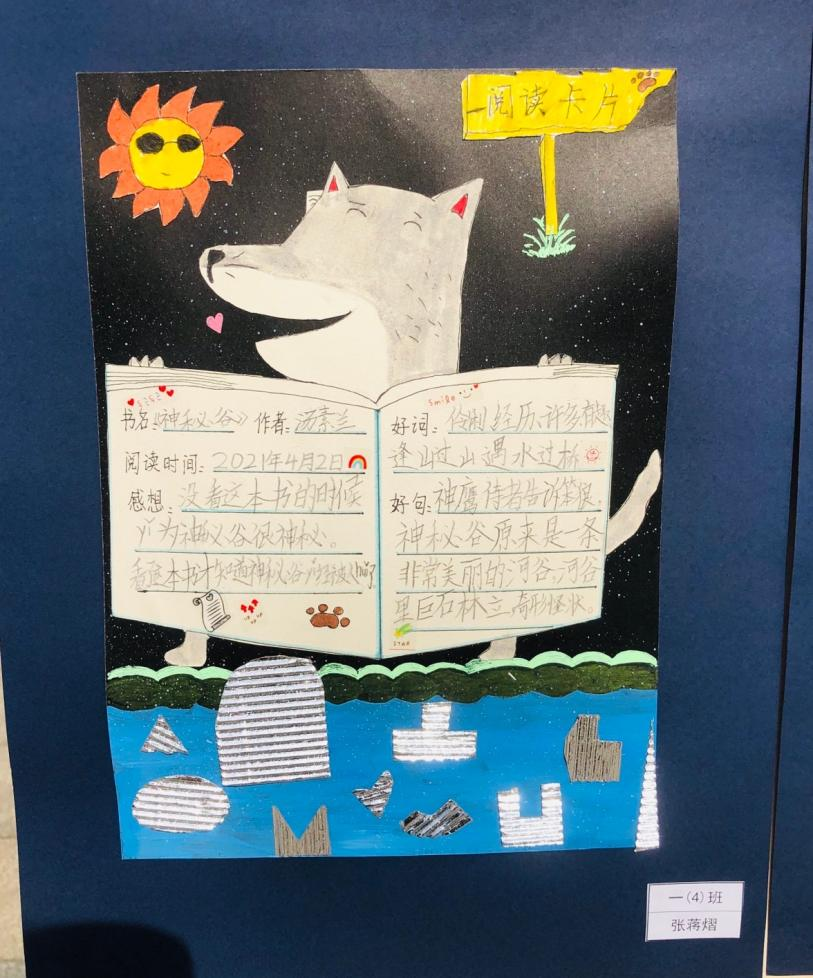 阅读卡片
书名：《神秘谷》 作者：汤素兰
阅读时间：2021年4月2日
感想：没看这本书的时候
以为神秘谷很神秘。
看这本书才知道神秘谷
smile
好词：伶俐、经历、许多、有趣
逢山过山遇水过桥
好句：神鹰侍者告诉笨狼，
神秘谷原来是一条
非常美丽的河谷，河谷
里巨石林立，奇形怪状。
STAR
一(4)班
张蒋熠